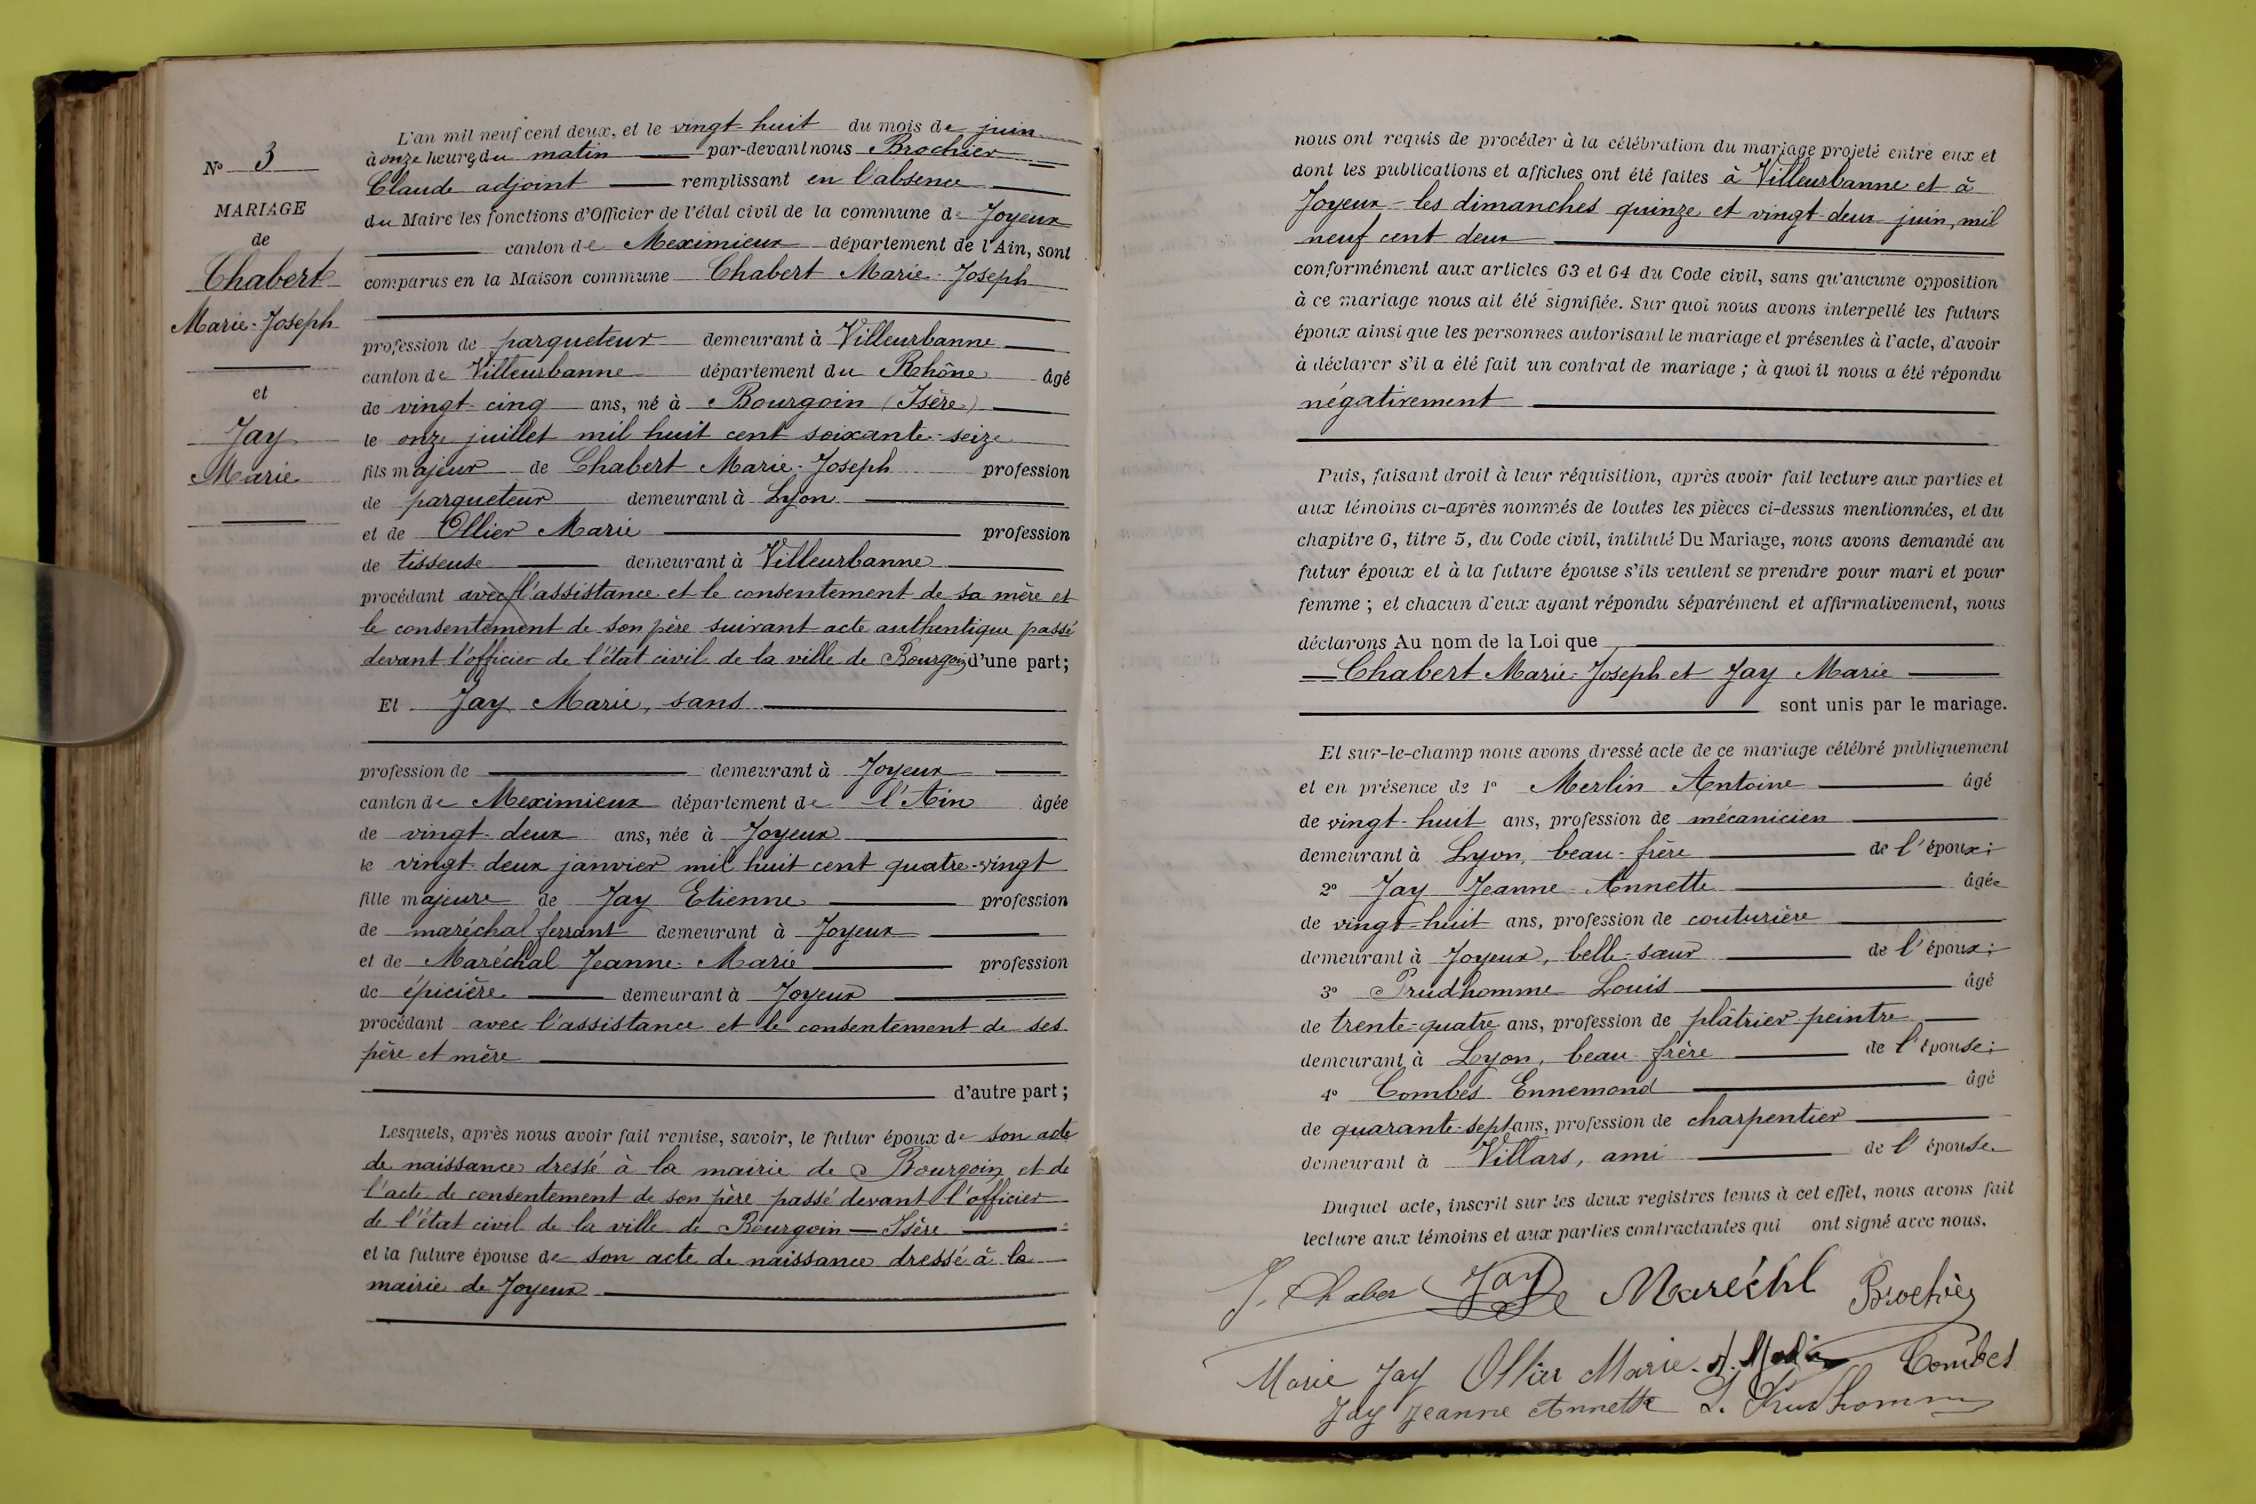 N° 3
MARIAGE
de
Chabert
Marie-Joseph
et
Jay
Marie
L'an mil neuf cent deux, et le vingt-huit du mois de juin
à onze heures du matin par-devant nous Brochier
Claude adjoint remplissant en l'absence
du Maire les fonctions d'Officier de l'état civil de la commune de Joyeux
canton de Meximieux département de l'Ain, sont
comparus en la Maison commune Chabert Marie-Joseph
profession de parqueteur demeurant à Villeurbanne
canton de Villeurbanne département du Rhône âgé
de vingt-cinq ans, né à Bourgoin (Isère)
le onze juillet mil huit cent soixante-seize
fils majeur de Chabert Marie-Joseph profession
de parqueteur demeurant à Lyon
et de Ollier Marie profession
de tisseuse demeurant à Villeurbanne
procédant avec l'assistance et le consentement de sa mère et
le consentement de son père suivant acte authentique passé
devant l'officier de l'état civil de la ville de Bourgoin d'une part;
Et Jay Marie, sans
profession de demeurant à Joyeux
canton de Meximieux département de l'Ain âgée
de vingt-deux ans, née à Joyeux
le vingt-deux janvier mil huit cent quatre-vingt
fille majeure de Jay Etienne profession
de maréchal ferrant demeurant à Joyeux
et de Maréchal Jeanne-Marie profession
de épicière demeurant à Joyeux
procédant avec l'assistance et le consentement de ses
père et mère
d'autre part;
Lesquels, après nous avoir fait remise, savoir, le futur époux de son acte
de naissance dressé à la mairie de Bourgoin, et de
l'acte de consentement de son père passé devant l'officier
de l'état civil de la ville de Bourgoin — Isère
et la future épouse de son acte de naissance dressé à la
mairie de Joyeux
nous ont requis de procéder à la célébration du mariage projeté entre eux et
dont les publications et affiches ont été faites à Villeurbanne et à
Joyeux - les dimanches quinze et vingt-deux juin, mil
neuf cent deux
conformément aux articles 63 et 64 du Code civil, sans qu'aucune opposition
à ce mariage nous ait été signifiée. Sur quoi nous avons interpellé les futurs
époux ainsi que les personnes autorisant le mariage et présentes à l'acte, d'avoir
à déclarer s'il a été fait un contrat de mariage ; à quoi il nous a été répondu
négativement
Puis, faisant droit à leur réquisition, après avoir fait lecture aux parties et
aux témoins ci-après nommés de toutes les pièces ci-dessus mentionnées, et du
chapitre 6, titre 5, du Code civil, intitulé Du Mariage, nous avons demandé au
futur époux et à la future épouse s'ils veulent se prendre pour mari et pour
femme ; et chacun d'eux ayant répondu séparément et affirmativement, nous
déclarons Au nom de la Loi que
Chabert Marie-Joseph et Jay Marie
sont unis par le mariage.
Et sur-le-champ nous avons dressé acte de ce mariage célébré publiquement
et en présence de 1° Merlin Antoine âgé
de vingt-huit ans, profession de mécanicien
demeurant à Lyon, beau-frère de l'époux;
2° Jay Jeanne-Annette âgée
de vingt-huit ans, profession de couturière
demeurant à Joyeux, belle-sœur de l'époux;
3° Prudhomme Louis âgé
de trente-quatre ans, profession de plâtrier-peintre
demeurant à Lyon, beau-frère de l'épouse;
4° Combes Ennemond âgé
de quarante-sept ans, profession de charpentier
demeurant à Villars, ami de l'épouse
Duquel acte, inscrit sur les deux registres tenus à cet effet, nous avons fait
lecture aux témoins et aux parties contractantes qui ont signé avec nous.
J. Chaber Jay Maréchl Brochier
Marie Jay Ollier Marie A. Merlin Combes
Jay Jeanne Annette L. Prudhomme